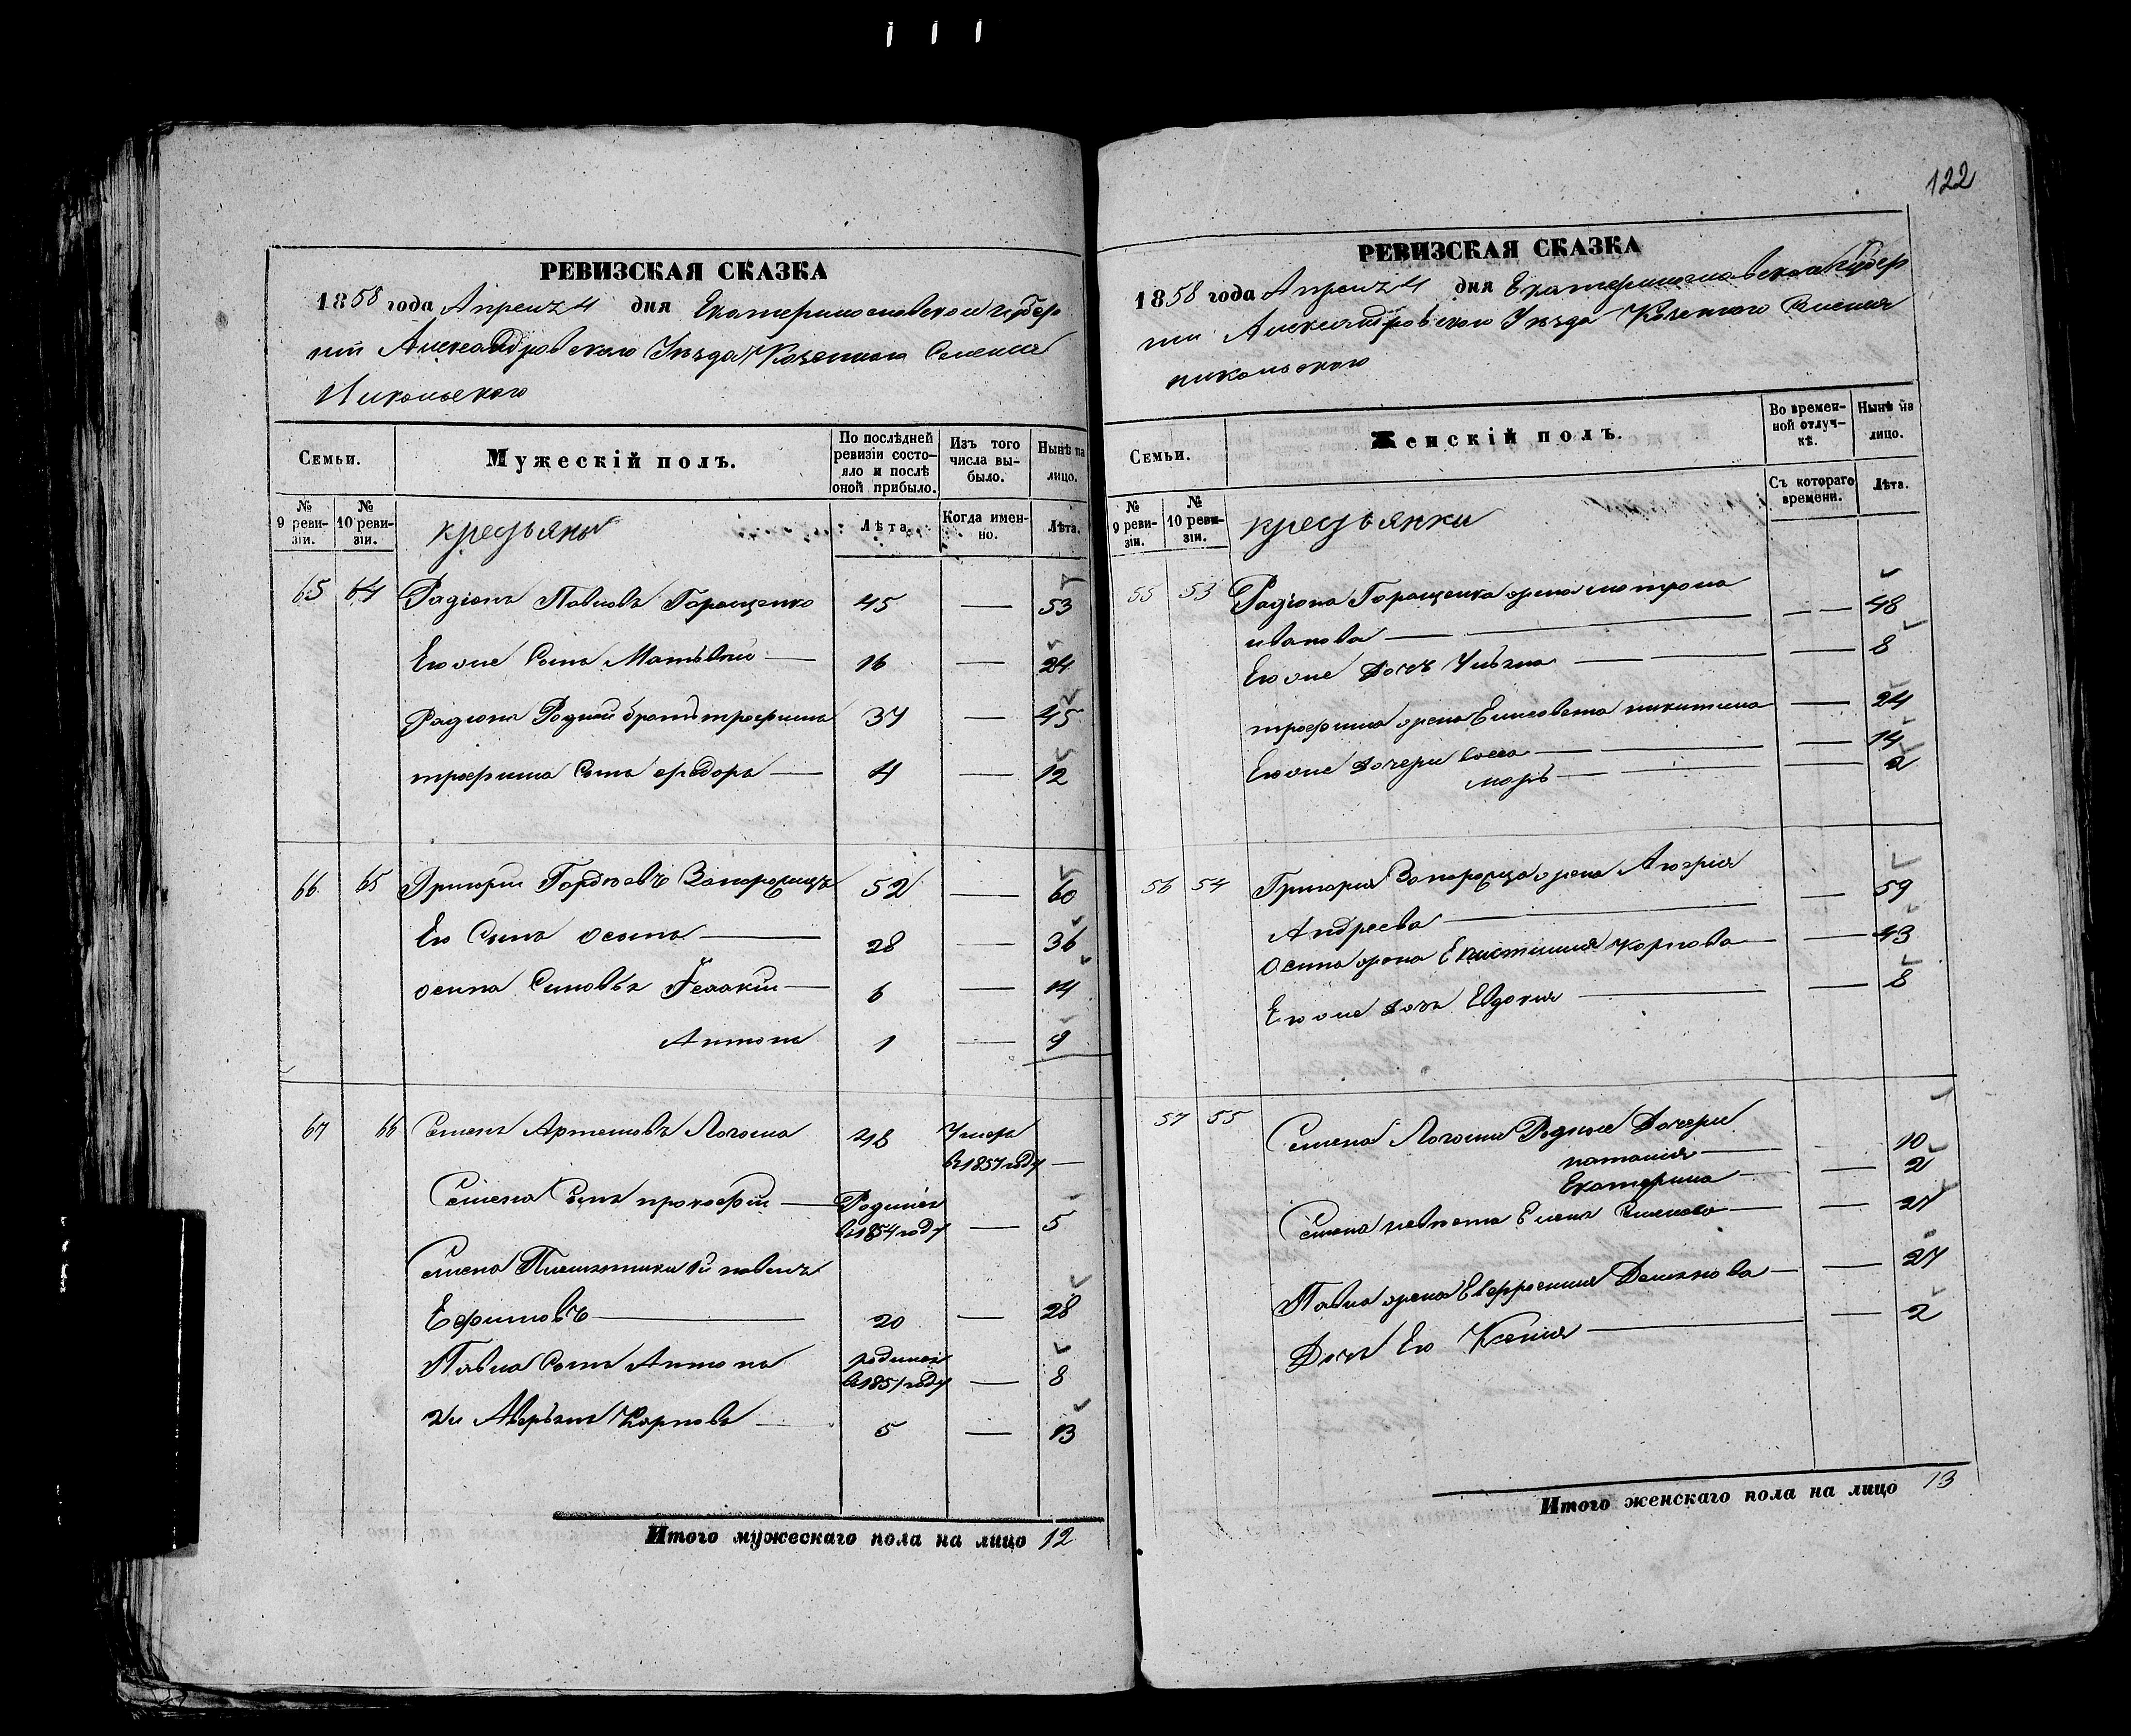 122
РЕВИЗСКАЯ СКАЗКА
1858 года Апреля 4 дня Екатеринославской губер
нии Александровского Уезда Казенного Селения
Никольского
Семьи.
Мужескій полъ.
По послѣдней ревизіи состояло и послѣ оной прибыло.
Изъ того числа выбыло.
Нынѣ на лицо.
№ 9 ревизіи.
№ 10 ревизіи.
крестьяны
Лѣта.
Когда именно.
Лѣта.
65 64 Радіонъ Павловъ Горащенко 45 — 53
Его же Сынъ Матвѣй — 16 — 24
Радіона Родной братъ трофимъ 37 — 45
трофима Сынъ федоръ — 4 — 12
66 65 Григорій Гордѣевъ Запорожецъ 52 — 60
Его Сынъ Осипъ — 28 — 36
осипа Сыновья — 6 — 14
Антонъ 1 — 9
67 66 Семенъ Артемовъ 48 Умеръ
в 1857 году —
Семена Сынъ прокофій — Родился
в 1854 году — 5
Семена Племянникъ павелъ
Ефимовъ — 20 — 28
Павла Сынъ Антонъ родился
в 1851 году — 8
2й Аверьянъ Карповъ — 5 — 13
Итого мужескаго пола на лицо 12
РЕВИЗСКАЯ СКАЗКА
1858 года Апреля 4 дня Екатеринославской Губер
нии Александровского Уезда Казенного Селения
никольского
Семьи.
Женскій полъ.
Во временной отлучкѣ.
Нынѣ на лицо.
№ 9 ревизіи.
№ 10 ревизіи.
крестьянки
Съ котораго времени.
Лѣта.
55 53 Радіона Горащенка жена мотрона
иванова — — 48
Его же Дочь Ульяна — — 8
трофима жена Елисовета никитина — 24
Его же дочери — — 14
марья — — 2
56 54 Григорія Запорожца жена
Андреева — — 59
Осипа жена карпова — — 43
Его же дочь Евдокия — — 8
57 55 Семена Родные Дочери
наталия — 10
Екатерина — — 2
Семена невеста Елена — — 27
Павла жена Евфросиния Демянова — — 27
Дочь Его Ксения — — 2
Итого женскаго пола на лицо 13